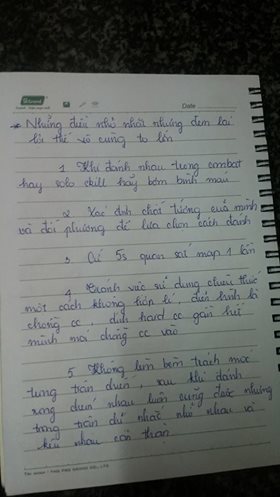 Date
* Những điều nhỏ nhặt nhưng đem lại
lợi thế vô cùng to lớn
1 Khi đánh nhau trong combat
hay solo skill hãy bơm bình máu
2 Xác định chất tướng của mình
và đối phương để lựa chọn cách đánh
3 Cứ 5s quan sát map 1 lần
4 Tránh việc sử dụng chiêu thức
một cách không hợp lí, điển hình là
chống cc, dính hard cc gần hết
mình mới chống cc vào
5 Không lèm bèm trách móc
tung trận điên, sau khi đánh
xong điên nhau luôn cũng được nhưng
trong trận chỉ nhắc nhở nhau và
kêu nhau cẩn thận